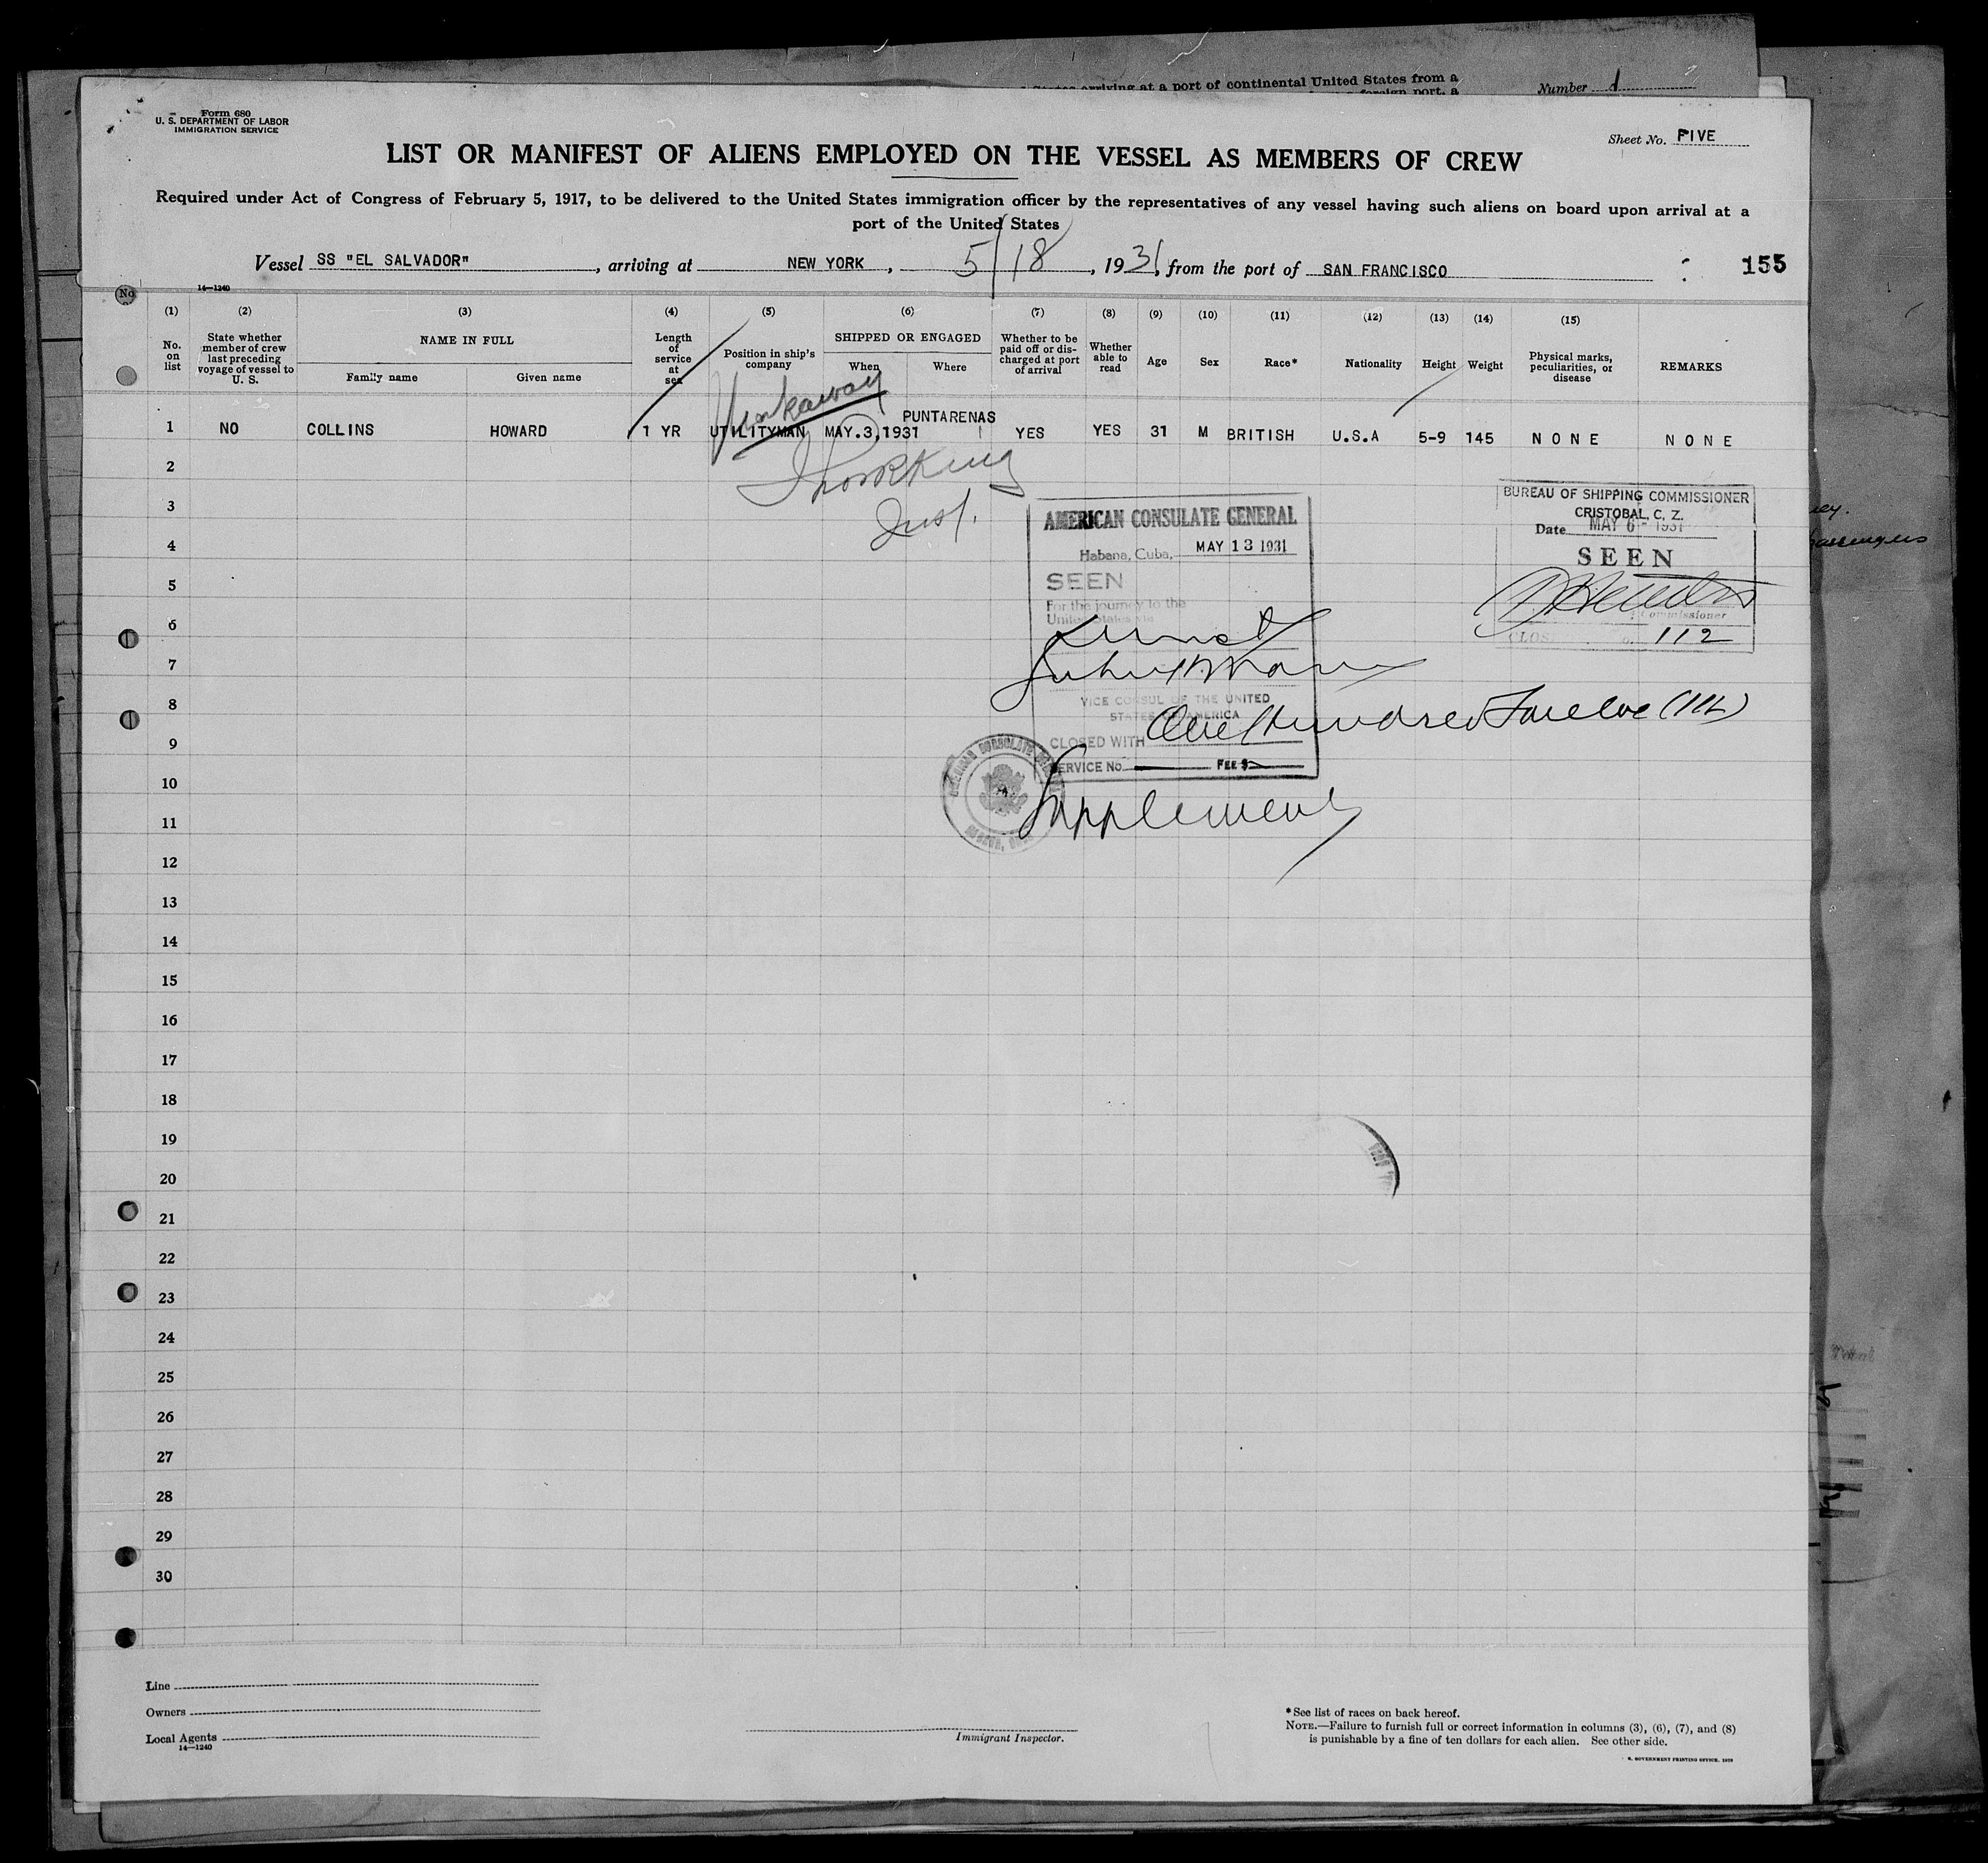 States arriving at a port of continental United States from a
foreign port, a
Number 1
Form 680
U. S. DEPARTMENT OF LABOR
IMMIGRATION SERVICE
Sheet No. FIVE
LIST OR MANIFEST OF ALIENS EMPLOYED ON THE VESSEL AS MEMBERS OF CREW
Required under Act of Congress of February 5, 1917, to be delivered to the United States immigration officer by the representatives of any vessel having such aliens on board upon arrival at a
port of the United States
Vessel SS "EL SALVADOR", arriving at NEW YORK, 5/18, 1931, from the port of SAN FRANCISCO
155
14—1240
No
(1) (2) (3) (4) (5) (6) (7) (8) (9) (10) (11) (12) (13) (14) (15)
No. on list
State whether member of crew last preceding voyage of vessel to U. S.
NAME IN FULL
Family name Given name
Length of service at sea
Position in ship's company
SHIPPED OR ENGAGED
When Where
Whether to be paid off or discharged at port of arrival
Whether able to read
Age
Sex
Race*
Nationality
Height
Weight
Physical marks, peculiarities, or disease
REMARKS
Workaway
PUNTARENAS
1 NO COLLINS HOWARD 1 YR UTILITYMAN MAY.3,1931 YES YES 31 M BRITISH U.S.A 5-9 145 NONE NONE
2
3
4
5
6
7
8
9
10
11
12
13
14
15
16
17
18
19
20
21
22
23
24
25
26
27
28
29
30
Insp.
AMERICAN CONSULATE GENERAL
Habana, Cuba, MAY 13 1931
SEEN
For the journey to the
United States via
VICE CONSUL OF THE UNITED
STATES OF AMERICA
CLOSED WITH One Hundred Twelve (112)
SERVICE No. FEE $
Supplement
AMERICAN CONSULATE GENERAL
HABANA, CUBA
BUREAU OF SHIPPING COMMISSIONER
CRISTOBAL, C. Z.
Date MAY 6 - 1931
SEEN
Commissioner
112
passengers
Line
Owners
Local Agents
14—1240
Immigrant Inspector.
*See list of races on back hereof.
NOTE.—Failure to furnish full or correct information in columns (3), (6), (7), and (8)
is punishable by a fine of ten dollars for each alien. See other side.
S. GOVERNMENT PRINTING OFFICE, 1929